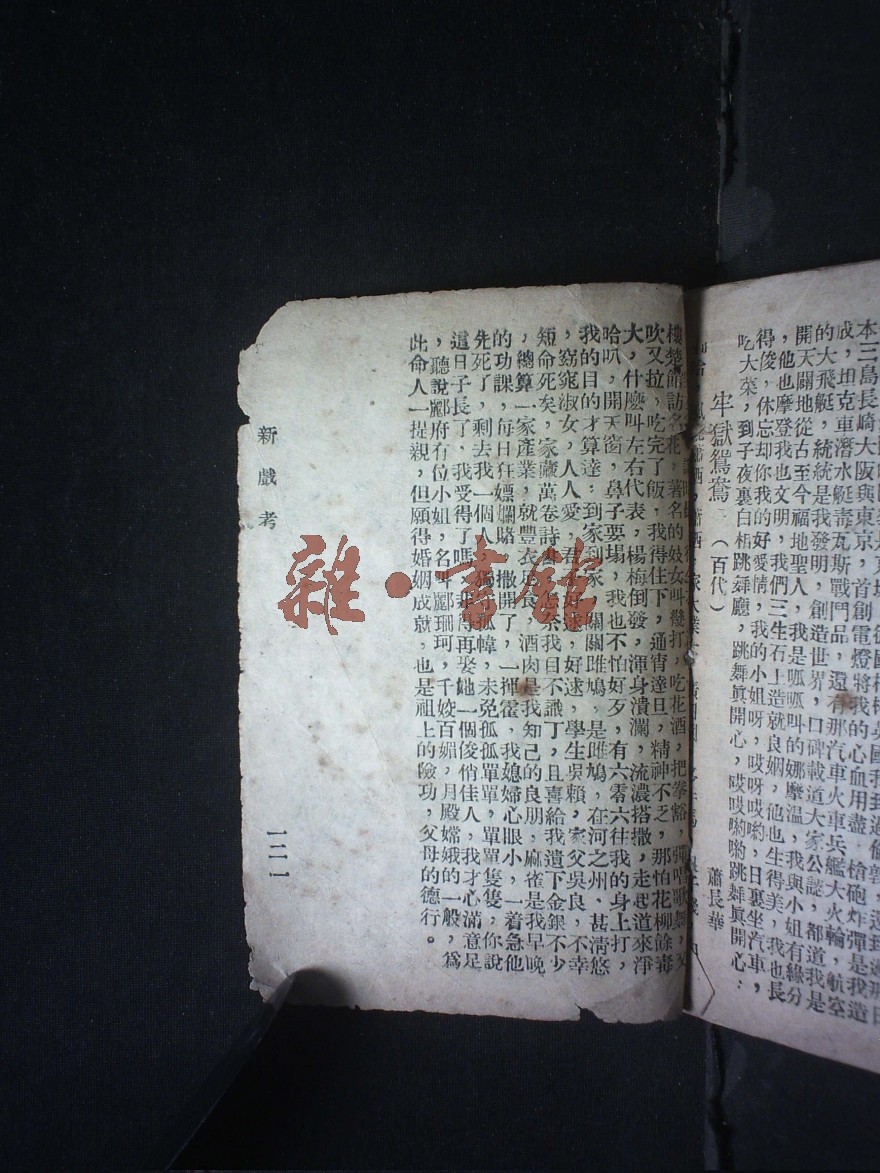 本三島長崎大阪與東京，首創電燈將我的心血用盡，槍砲炸彈是我造
成，坦克車潛水艇毒瓦斯戰鬥品，還有那汽車火車兵艦大火輪，航空
的大飛艇，統統是我發明，創造世界，口碑載道大家公認，都道我是
開天闢地從古至今福地聖人，我是呱呱叫的娜摩溫，我與小姐有緣分
，他也摩登我也文明，我們三生石上造就良姻，他也生得美，我也長
得俊，休忘却你我的好愛情，我的小姐呀，哎呀哎喲，日裏坐汽車，
吃大菜，到子夜裏白相跳舞廳，跳舞眞開心，哎哎喲喲跳舞眞開心：
牢獄鴛鴦（百代）
蕭長華
樓楚館訪名花，著名的妓女叫幾打，吃花酒，把拳豁，彈唱歌舞，又
吹又拉，吃完了飯，我得住下，通宵達旦，精神不乏，那怕花柳餘毒
大，什麼叫左右代表，楊梅倒發，渾身潰瀾，流濃搭撒，走起道來淨
哈叭，開天窗，鼻子要塌，我也不怕好歹，有六零六往我的身上打，
我的目的才算達：到家到家，關關雎鳩，是雎鳩，在河之州，甚清悠
，窈窕淑女，人人愛，君子好逑，好逑，學生吳賴，家父吳良，不幸
短命死矣，家藏萬卷詩書，怎奈我目不識丁，且喜給我遺下金銀不少
，總算一家產業，就豐衣足食，酒肉是我知己的良朋，麻雀是我早晚
的功課，每日狂嫖爛賭，撒開了，一揮霍，我媳婦心眼小，一着急他
先死了，剩去我一個人，獨守孤幃，未免孤孤單單，單單隻隻，你說
這日子長了，我受得了嗎，非得再娶她一個俊俏佳人，我才心滿意足
，聽說酈府有位小姐，名叫酈珊珂，千姣百媚，月殿嫦娥的一般，爲
此命人一提親，但願得婚姻成就，也是祖上的險功，父母的德行。
新戲考
一二一
雜·書館